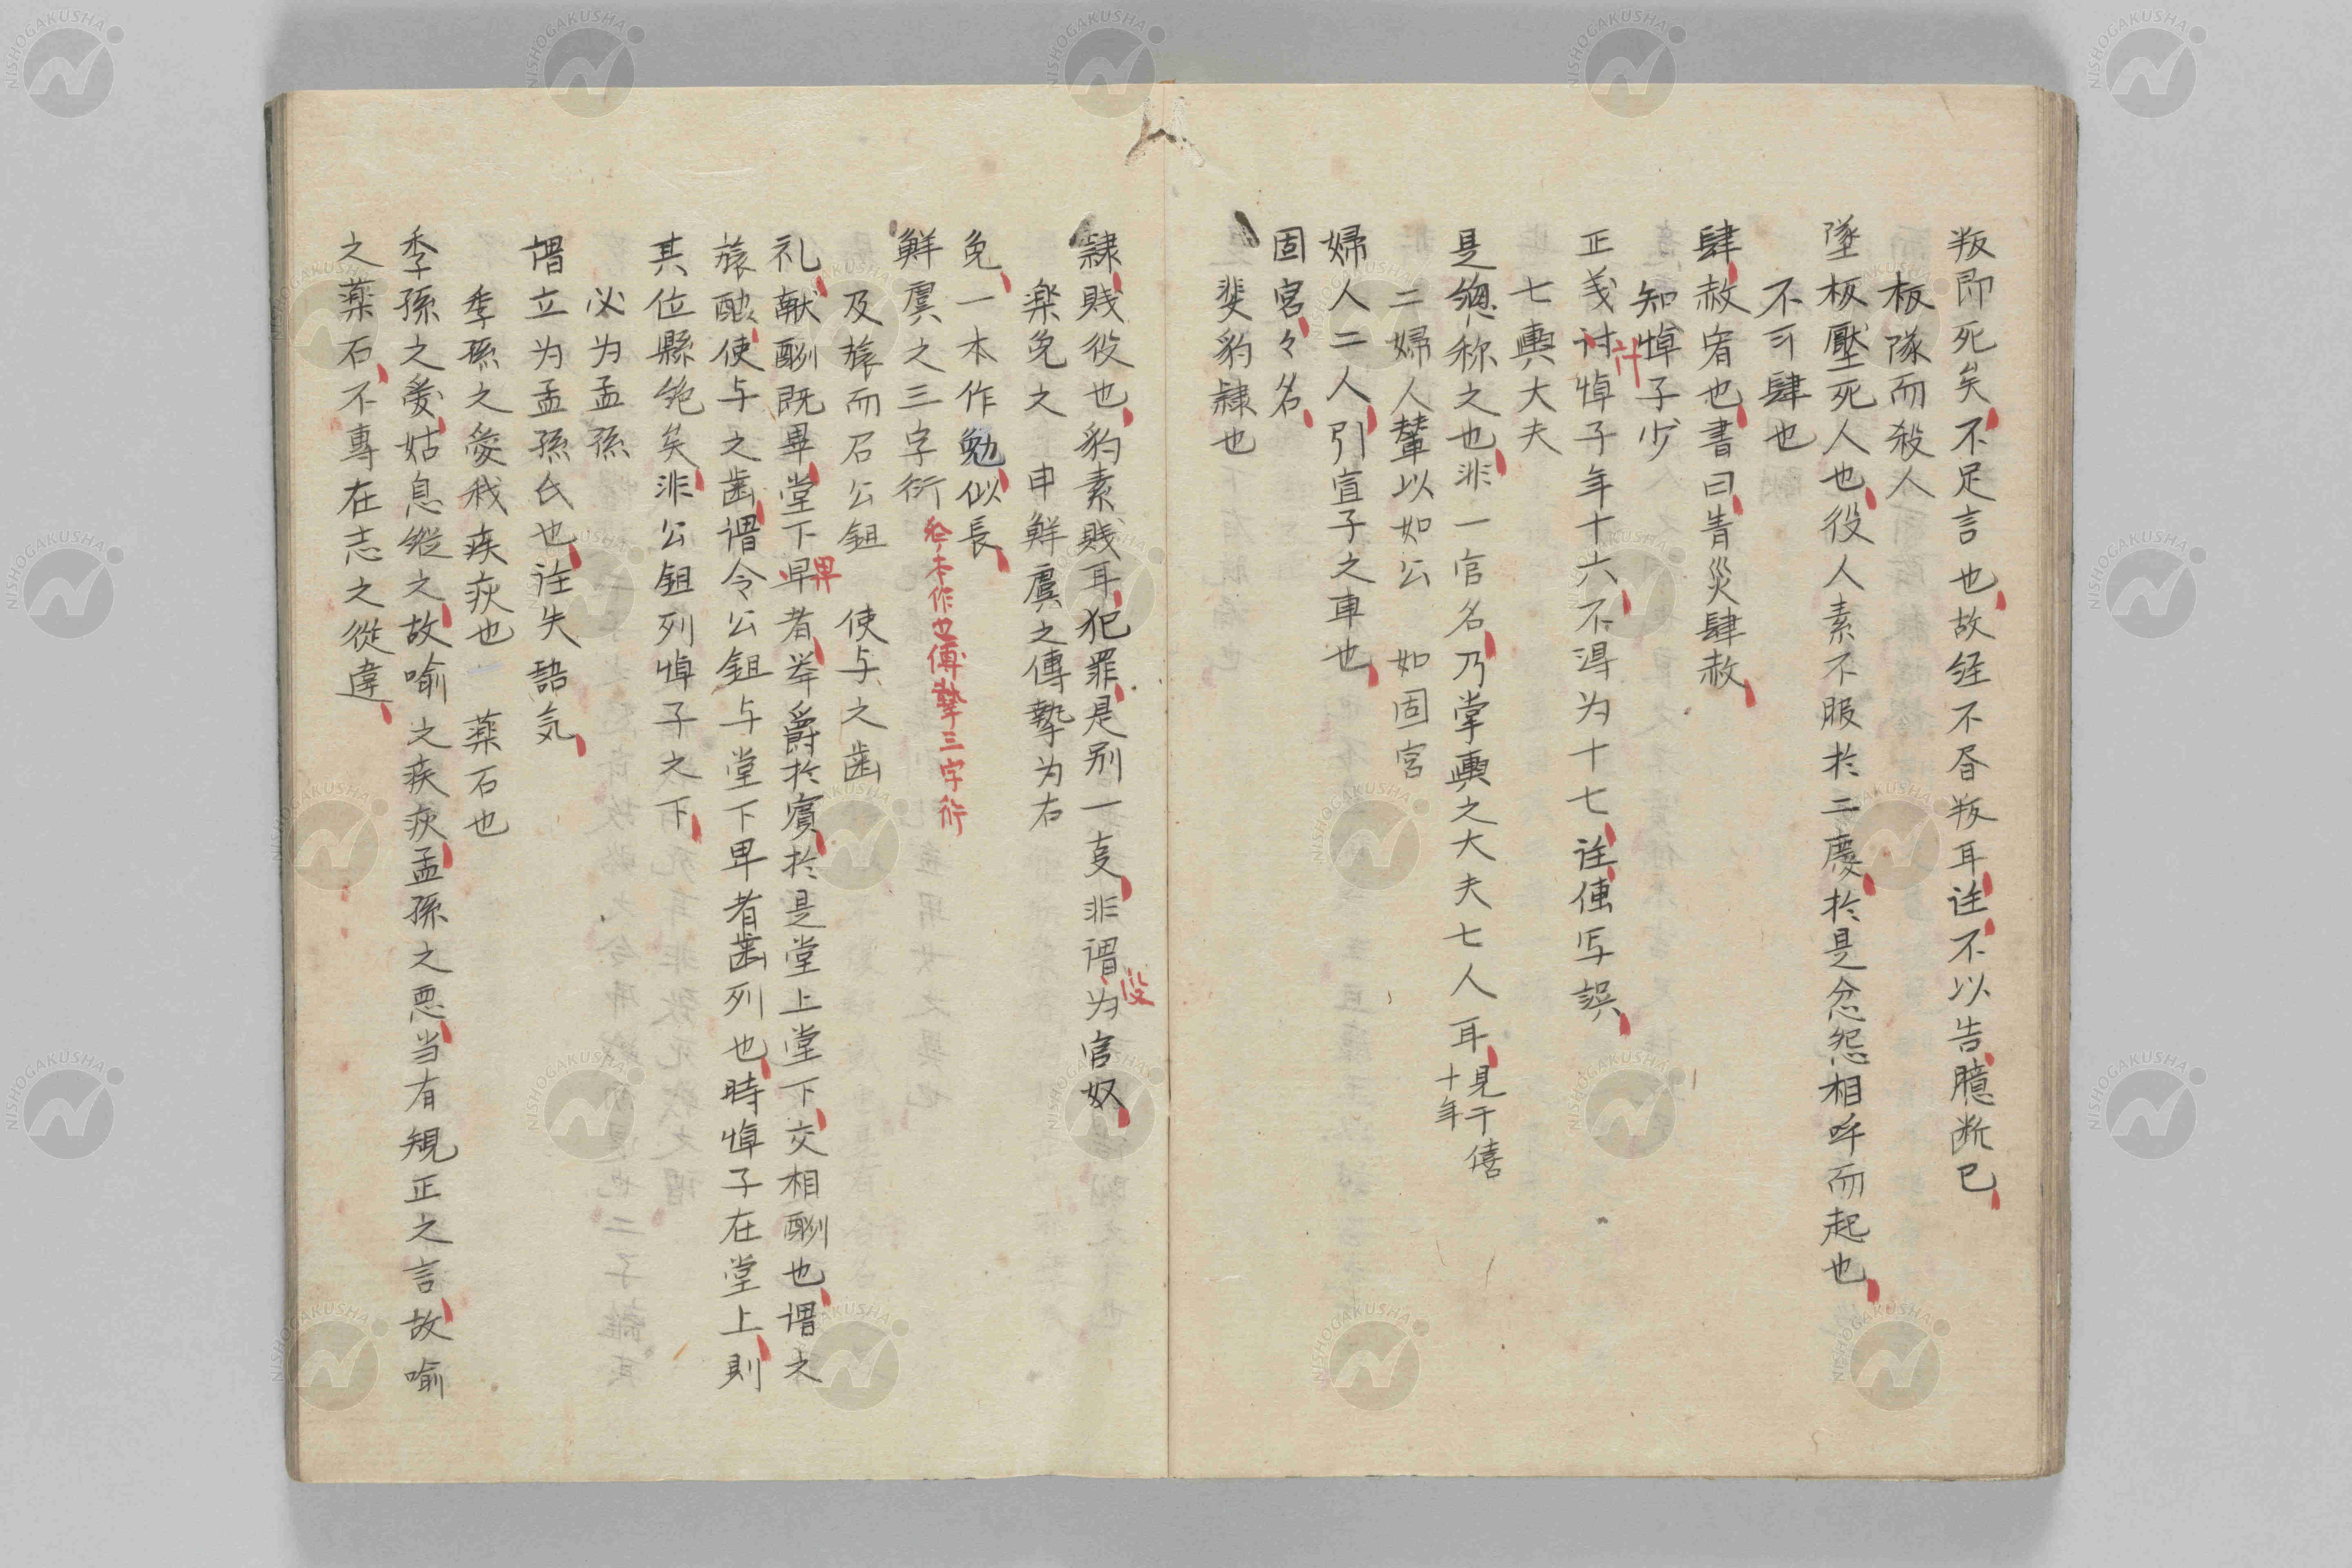 叛即死矣不足言也故経不書叛耳注不以告臆断已
板隊而殺人
墜板壓死人也役人素不服於二慶於是忿怨相呼而起也
不可肆也
肆赦宥也書曰眚災肆赦
知悼子少
正義討悼子年十六不得为十七注傳写誤
計
七輿大夫
是總称之也非一官名乃掌輿之大夫七人耳見于僖十年
二婦人輦以如公 如固宮
婦人二人引宣子之車也
固宮々名
斐豹隷也
隷賎役也豹素賎耳犯罪是别一事非謂为官奴
役
楽免之 申鮮虞之傳摯为右
免一本作勉似長
鮮虞之三字衍
今本作也傅摯三字衍
及旅而召公鉏 使与之歯
礼献酬既畢堂下卑者挙爵於賓於是堂上堂下交相酬也謂之
卑
旅酬使与之歯謂令公鉏与堂下卑者歯列也時悼子在堂上則
其位縣絶矣非公鉏列悼子之下
必为孟孫
謂立为孟孫氏也注失語気
季孫之愛我疾疢也 薬石也
季孫之愛姑息縦之故喻之疾疢孟孫之悪当有規正之言故喻
之薬石不專在志之從違
NISHOGAKUSHA